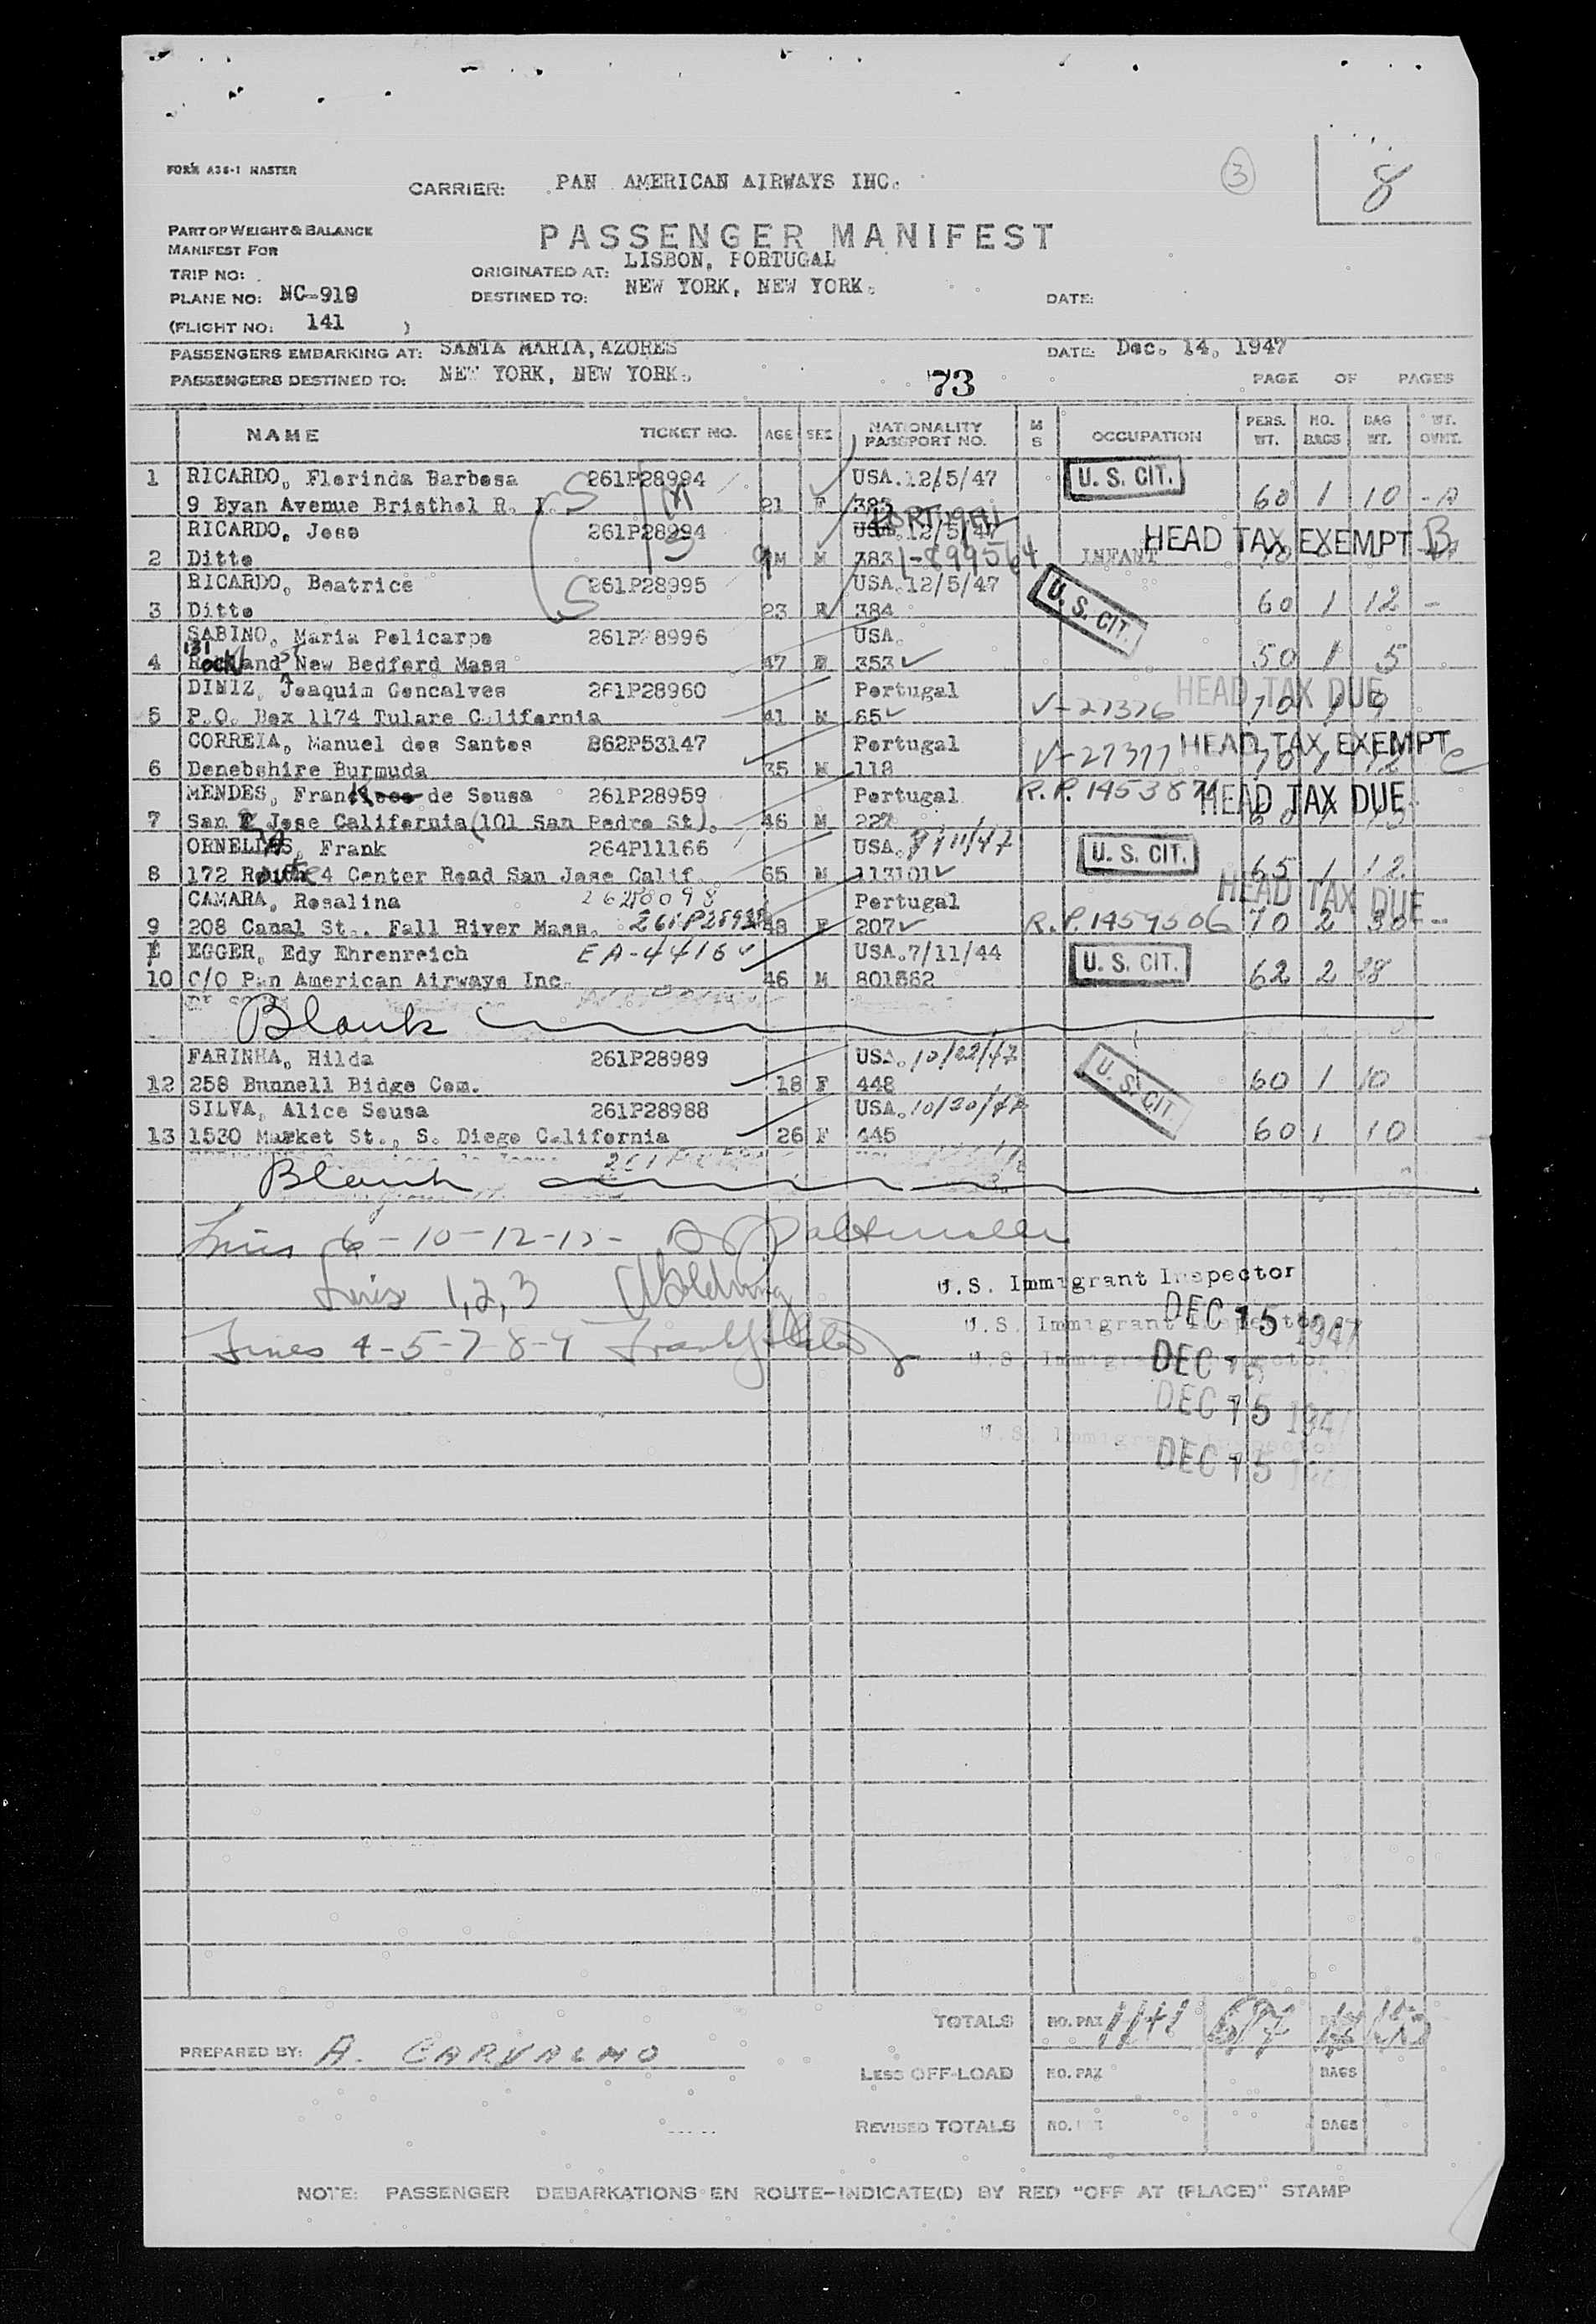 FORM A36-1 MASTER
CARRIER: PAN AMERICAN AIRWAYS INC.
3
8
PART OF WEIGHT & BALANCE
MANIFEST FOR
PASSENGER MANIFEST
TRIP NO:
ORIGINATED AT: LISBON, PORTUGAL
PLANE NO: NC-919
DESTINED TO: NEW YORK, NEW YORK.
DATE:
(FLIGHT NO: 141 )
PASSENGERS EMBARKING AT: SANTA MARIA, AZORES
DATE: Dec. 14, 1947
PASSENGERS DESTINED TO: NEW YORK, NEW YORK.
73
PAGE OF PAGES
NAME TICKET NO. AGE SEX NATIONALITY PASSPORT NO. M S OCCUPATION PERS. WT. NO. BAGS BAG WT. WT. OVWT.
RICARDO, Florinda Barbosa 261P28994 USA.12/5/47 U.S. CIT.
1 9 Byan Avenue Bristhol R. I. S 21 F 60 1 10 - A
RICARDO, Jose 261P28994 USA.12/5/47 HEAD TAX EXEMPT B
2 Ditto 9M M 383 1-899564 INFANT
RICARDO, Beatrice 261P28995 USA.12/5/47 U.S. CIT.
3 Ditto S 23 F 384 60 1 12 -
SABINO, Maria Policarpo 261P28996 USA.
4 131 Rockland St New Bedford Mass 47 F 353 50 1 5
DINIZ, Joaquim Goncalves 261P28960 Portugal HEAD TAX DUE
5 P.O. Box 1174 Tulare California 41 M 65 V-27376 70 1 9
CORREIA, Manuel dos Santos 262P53147 Portugal HEAD TAX EXEMPT C
6 Denebshire Burmuda 35 M 118 V-27377 70 1 12
MENDES, Frank de Sousa 261P28959 Portugal R.P. 1453874 HEAD TAX DUE
7 San Jose California (101 San Pedro St). 46 M 227
ORNELLAS, Frank 264P11166 USA. 9/11/47 U.S. CIT.
8 172 Route 4 Center Road San Jose Calif. 65 M 113101 65 1 12
CAMARA, Rosalina Portugal HEAD TAX DUE
9 208 Canal St.. Fall River Mass. 48 F 207 R.P. 1459506 70 2 30 -
EGGER, Edy Ehrenreich EA-4416 USA.7/11/44 U.S. CIT.
10 C/O Pan American Airways Inc. 46 M 801562 62 2 38
Blank
FARINHA, Hilda 261P28989 USA. 10/22/47 U.S. CIT.
12 258 Bunnell Bidge Com. 18 F 448 60 1 10
SILVA, Alice Sousa 261P28988 USA. 10/30/47
13 1530 Market St., S. Diego California 26 F 445 60 1 10
Blank
Lines 6-10-12-13-
Lines 1,2,3
U.S. Immigrant Inspector
DEC 15 1947
U.S. Immigrant Inspector
Lines 4-5-7-8-9
U.S. Immigrant Inspector
DEC 15
DEC 15 1947
U.S. Immigrant Inspector
DEC 15
TOTALS NO. PAX 11+1 687
PREPARED BY: A. CARVALHO
LESS OFF-LOAD NO. PAX BAGS
REVISED TOTALS NO. PAX BAGS
NOTE: PASSENGER DEBARKATIONS EN ROUTE-INDICATE(D) BY RED "OFF AT (PLACE)" STAMP